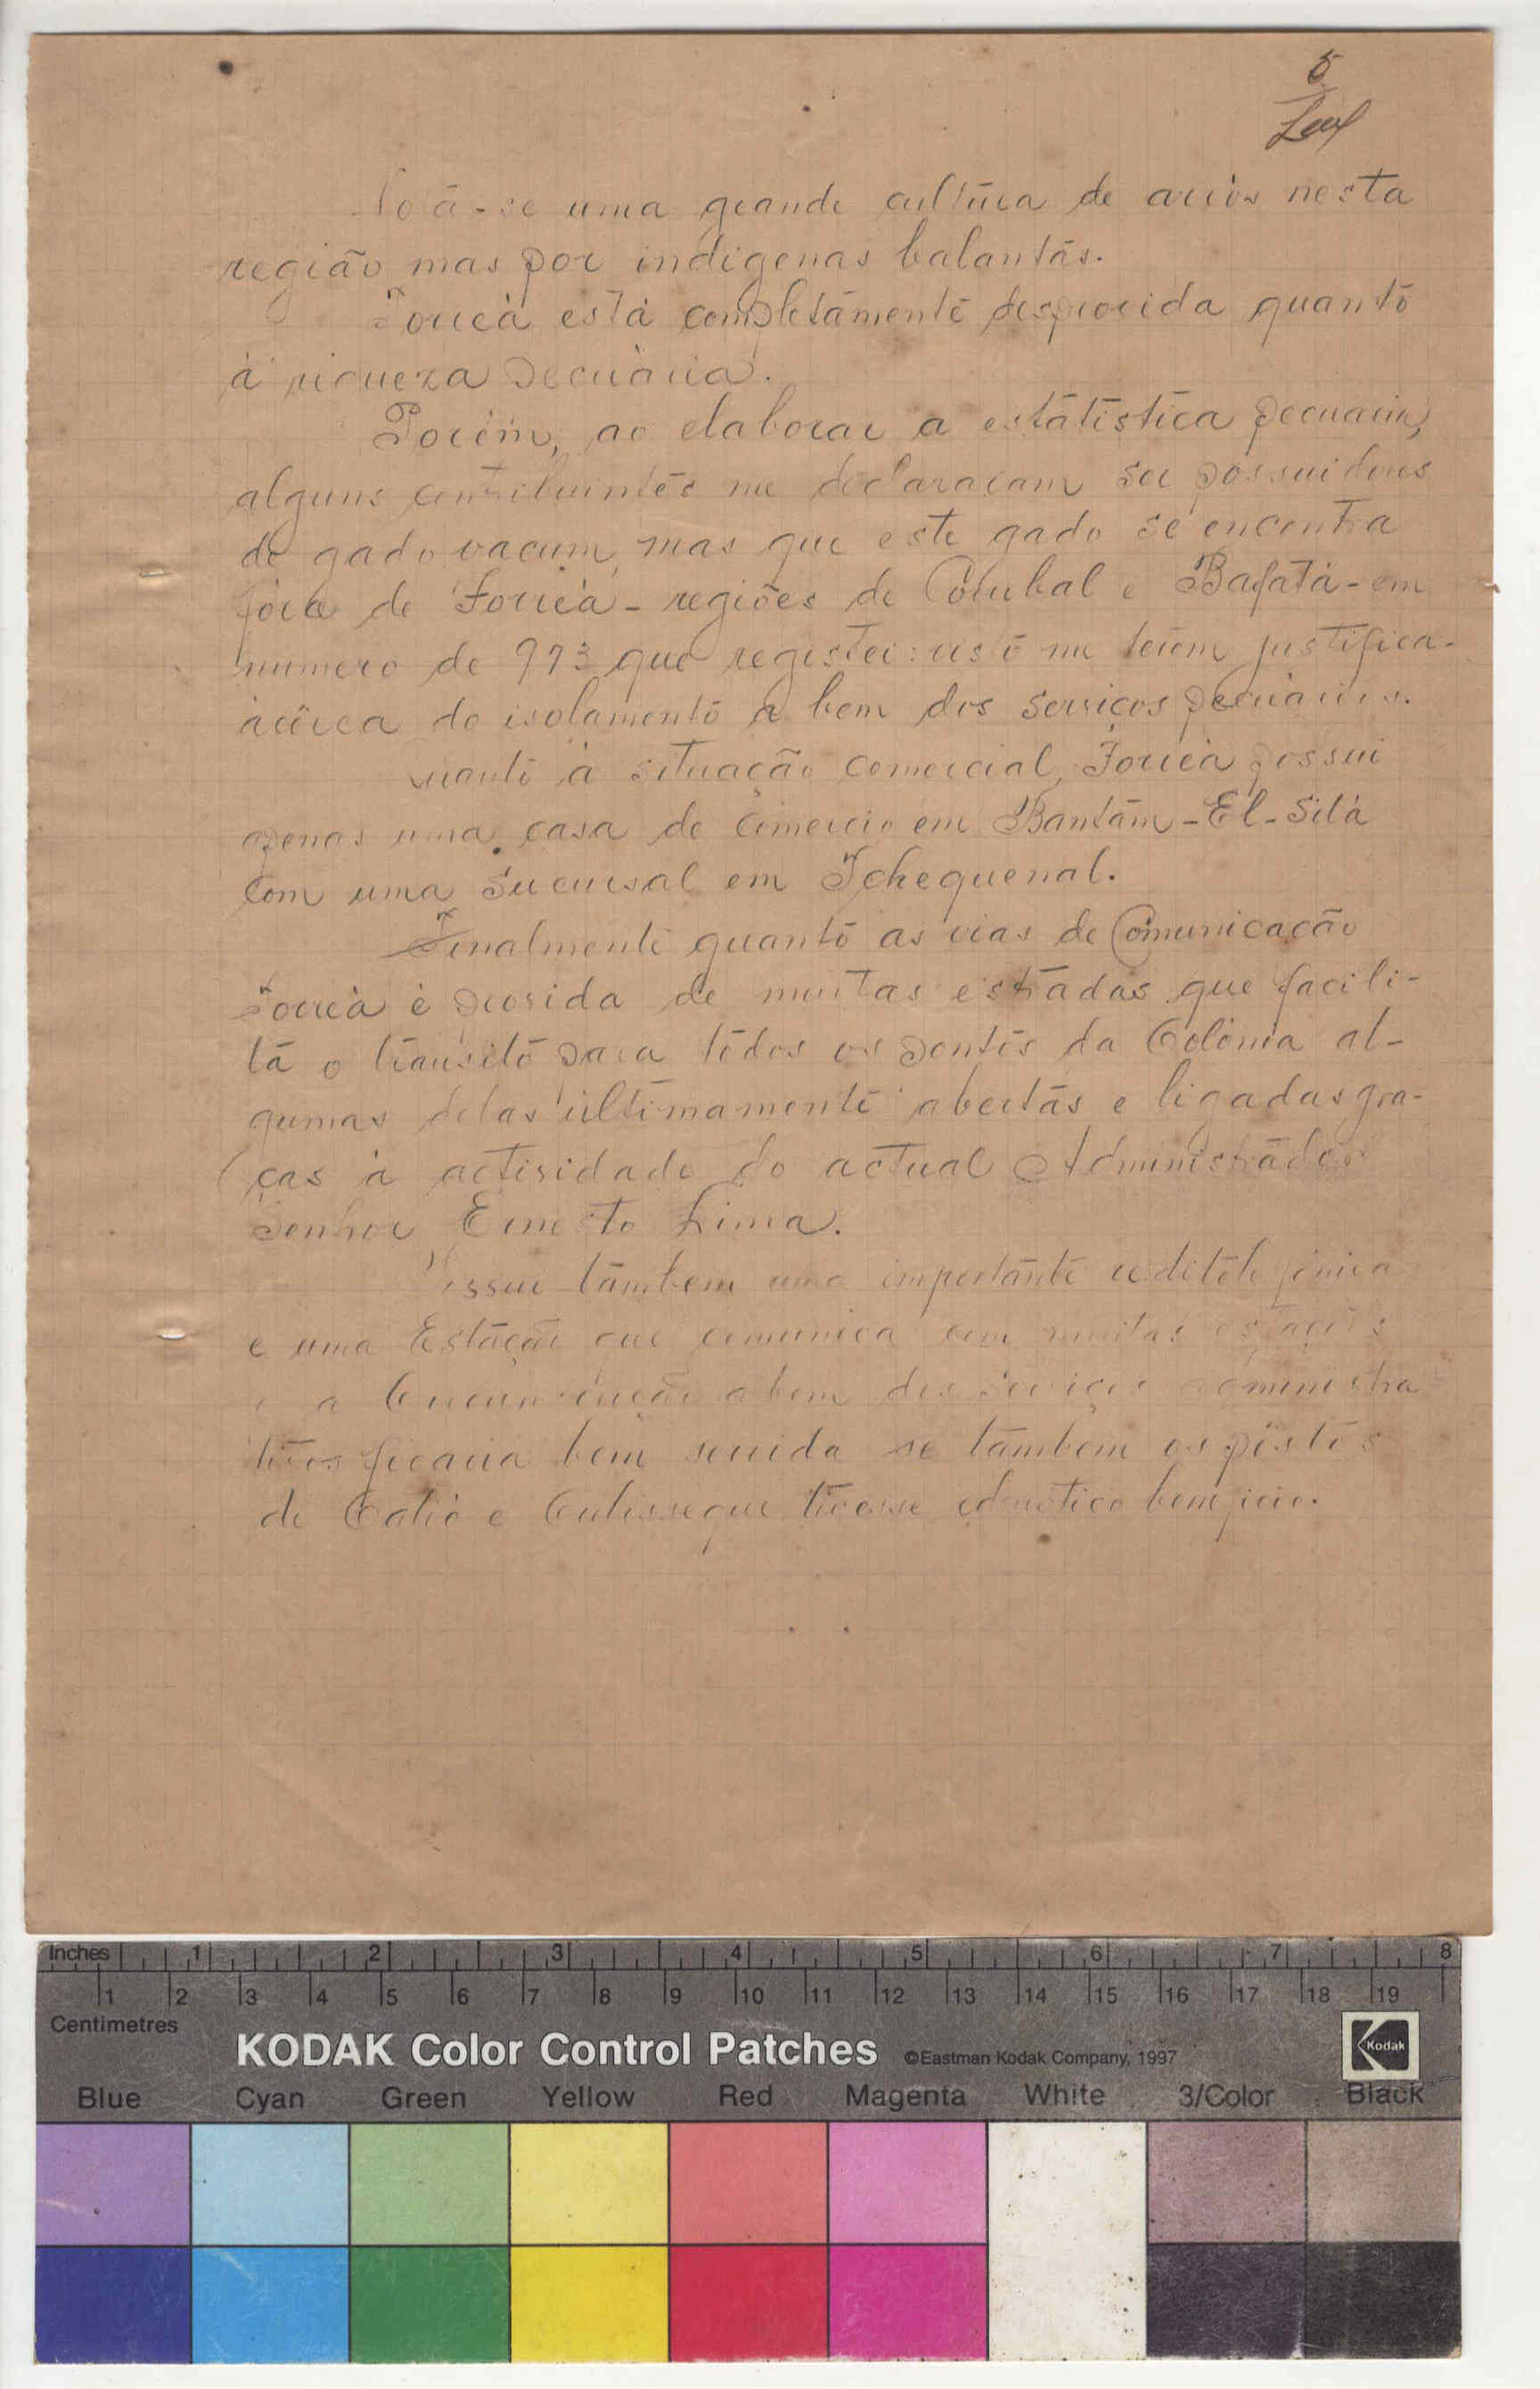 5
Leal
Notā-se uma grande cultūra de arròs nesta
região mas por indigenas balantās.
Forreà està completāmentē desprovida quantō
à riqueza pecuària.
Porém, ao elaborar a estātīstica pecuaria,
alguns contribuintēs me declararam ser possuidores
de gado vacum, mas que este gado se encontra
fóra de Forreà - regiões de Corubal e Bafatà - em
numero de 973 que registei: isto me
àcêrca do isolamentō a bem dos serviços pecuàrios.
Quantō à situação comercial, Forreà possui
apenas uma casa de comercio em Bantām-El-Silà
com uma sucursal em Tchequenal.
Finalmentē quantō as vias de Comunicação
Forreà è provida de muitas estrādas que facili-
tā o trānsitō para tōdos os pontōs da Colònia al-
gumas delas ùltīmamentē abertās e ligadas gra-
ças à actividade do actual Administrādor
Senhor Ernesto Lima.
Possui tāmbem uma importāntē rede tēlefònica
e uma Estāção que comunica com muitas estações
e a Circunscrição a bem dos serviços administra
tīvos ficaria bem servida se tāmbem os pòstōs
de Catiò e tīvesse idēntico beneficio.
Inches 1 2 3 4 5 6 7 8
1 2 3 4 5 6 7 8 9 10 11 12 13 14 15 16 17 18 19
Centimetres
KODAK Color Control Patches ©Eastman Kodak Company, 1997 Kodak
Blue Cyan Green Yellow Red Magenta White 3/Color Black